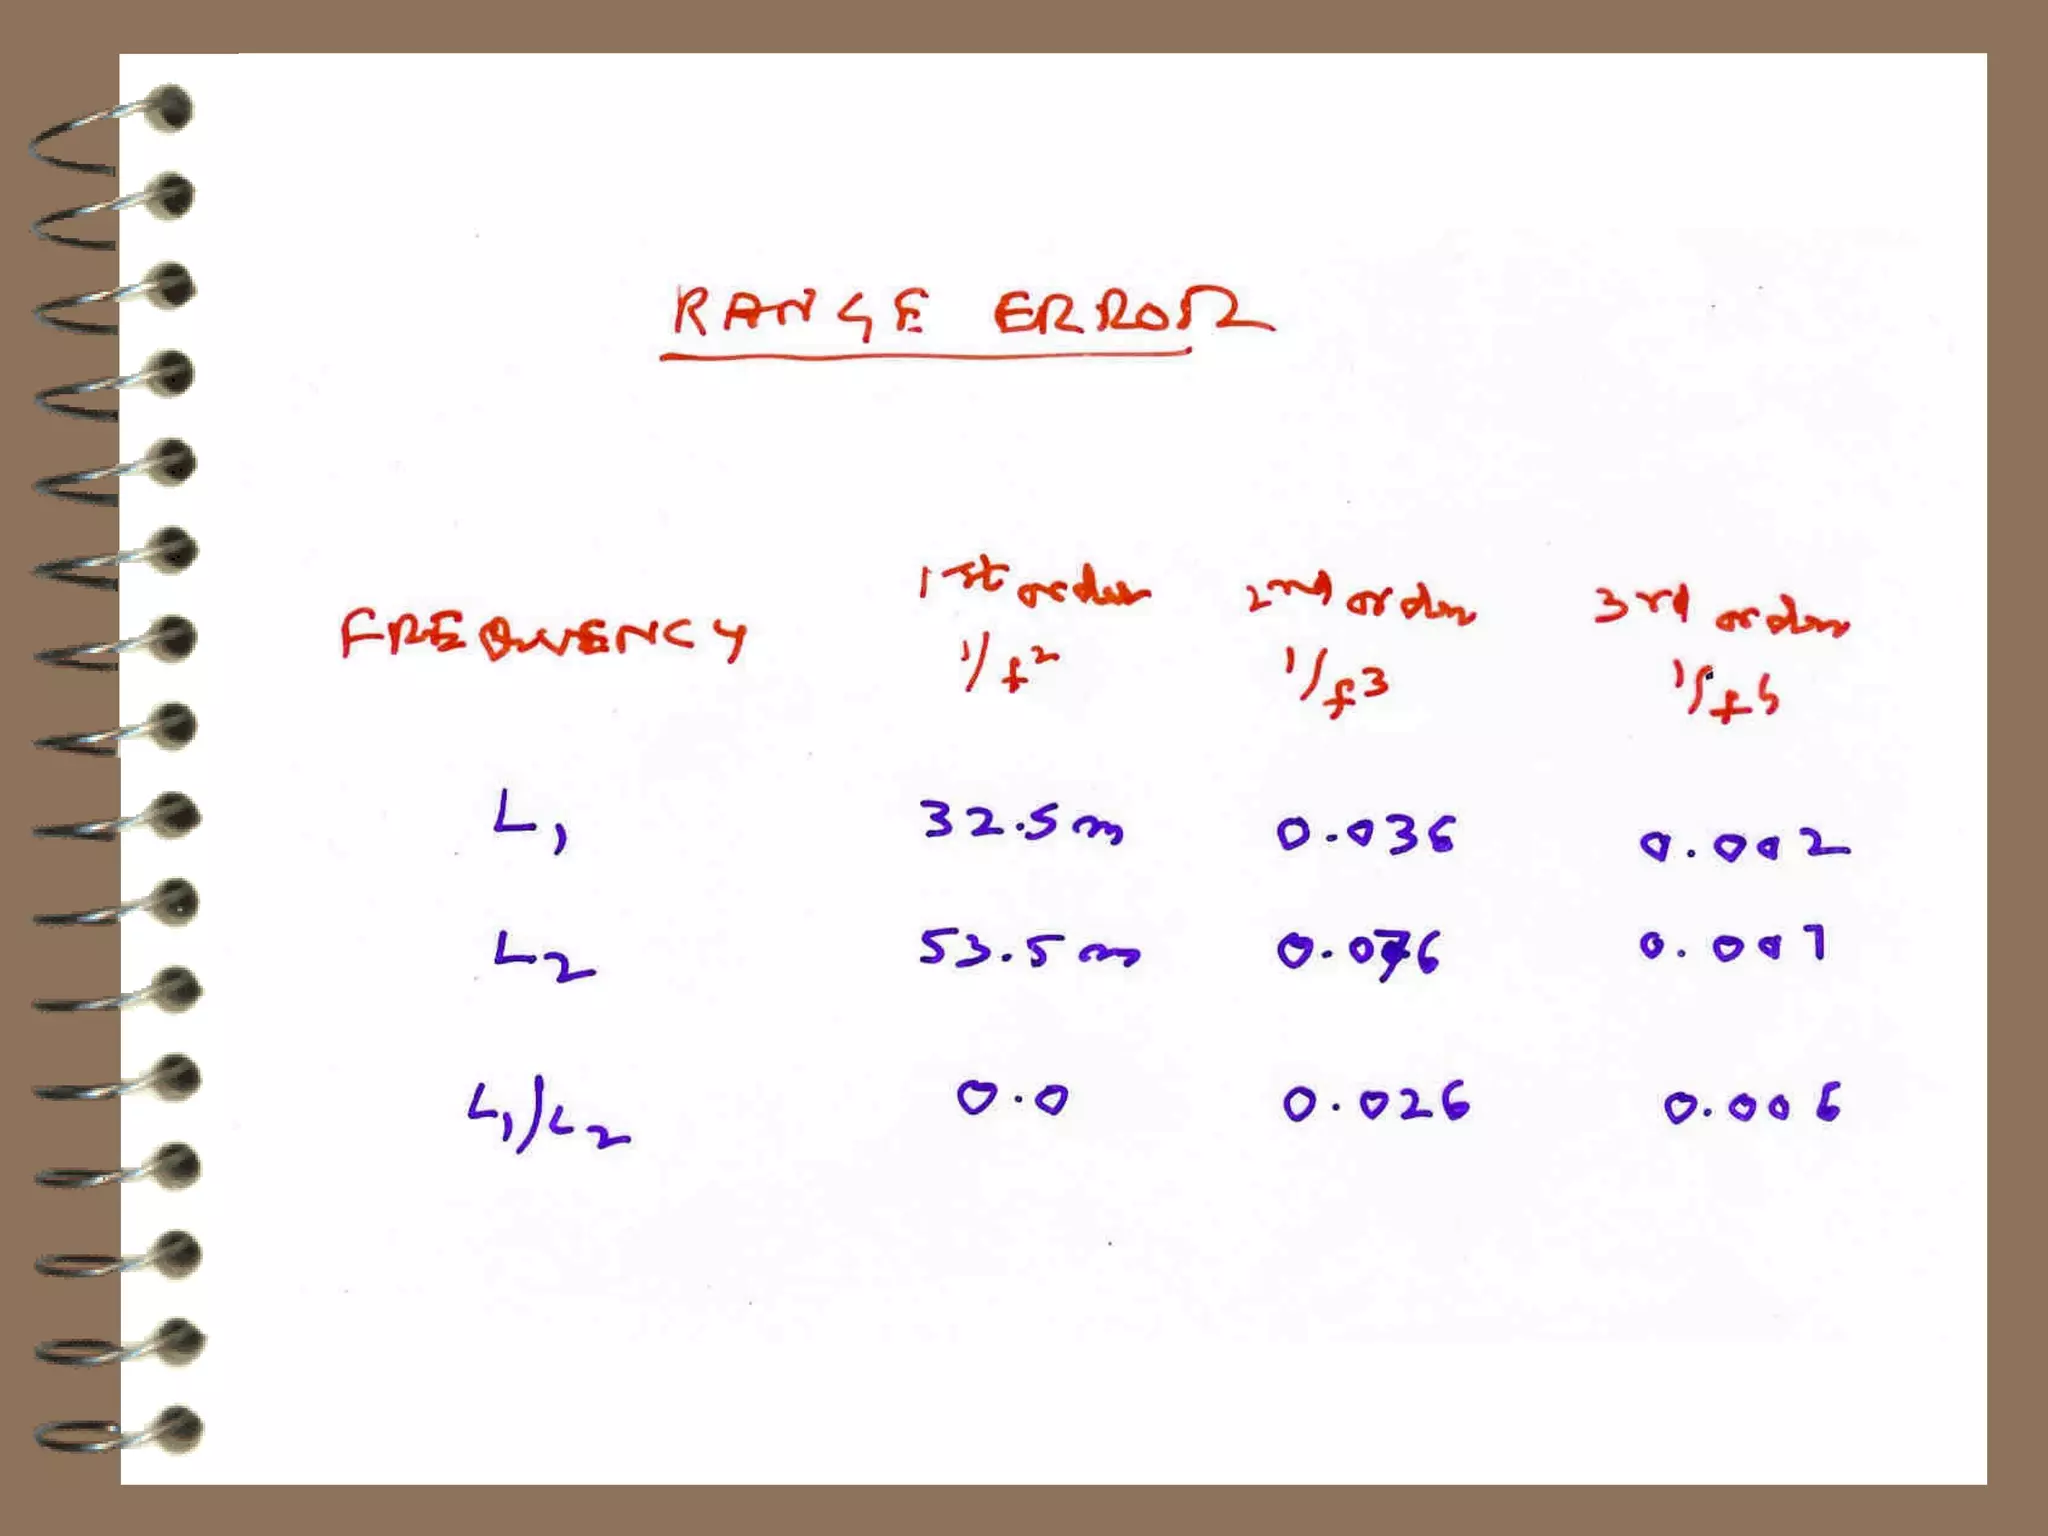 RANGE ERROR
FREQUENCY 1st order 2nd order 3rd order
1/f² 1/f3 1/f4
L1 32.5m 0.036 0.002
L2 53.5m 0.076 0.007
L1/L2 0.0 0.026 0.006